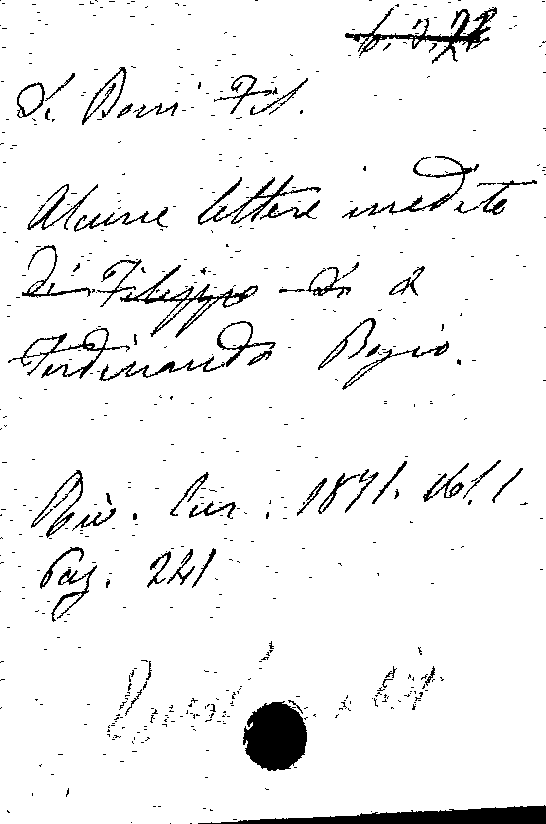 6.3.22
De Boni Fil.
Alcune lettere inedite
di Filippo De a
Ferdinando Bosio.
Riv. Eur. 1871. vol. 1
Pag. 221